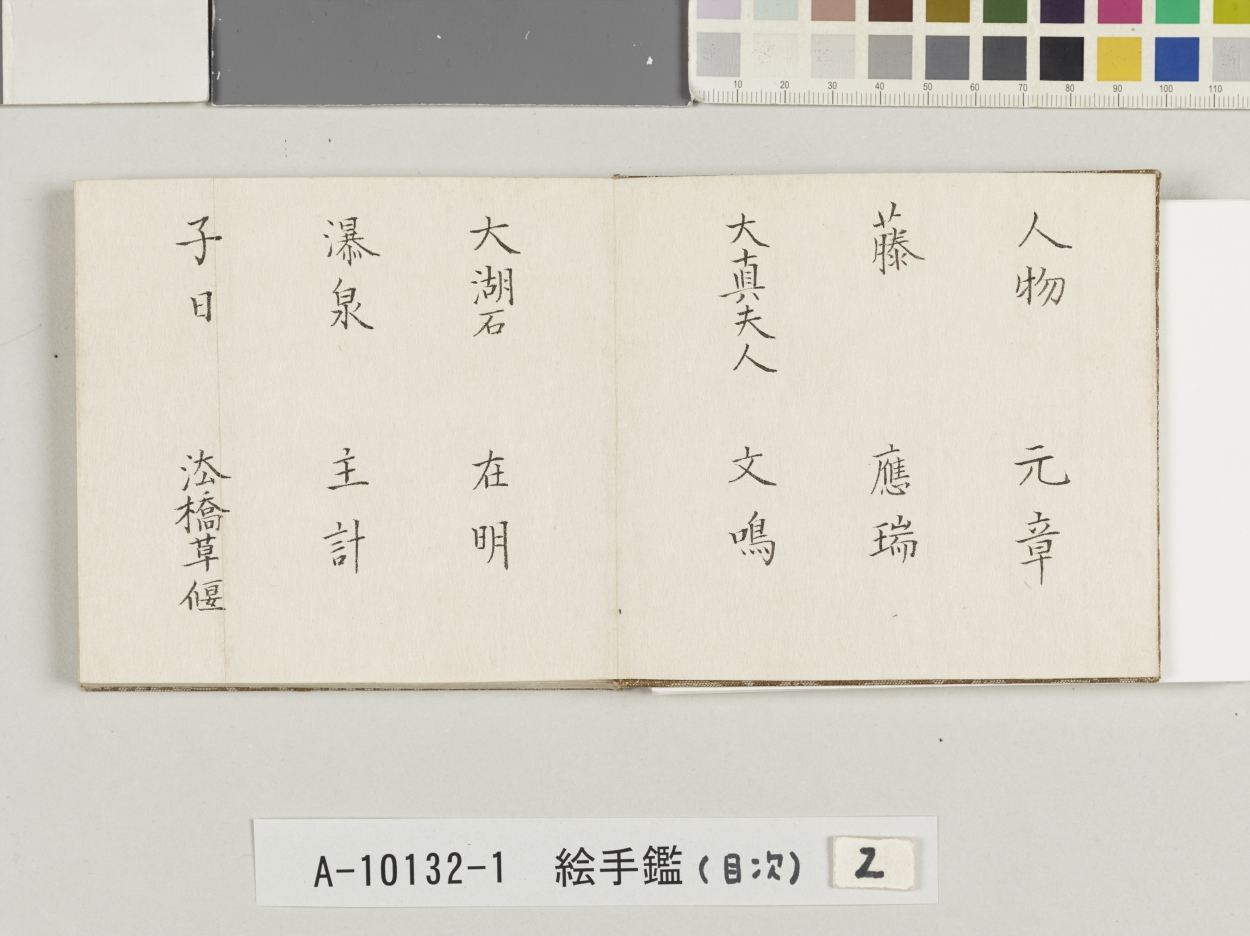 人物 元章
藤 應瑞
大真夫人 文鳴
大湖石 在明
瀑泉 主計
子日 法橋草偃
A-10132-1 絵手鑑(目次) 2
10 20 30 40 50 60 70 80 90 100 110